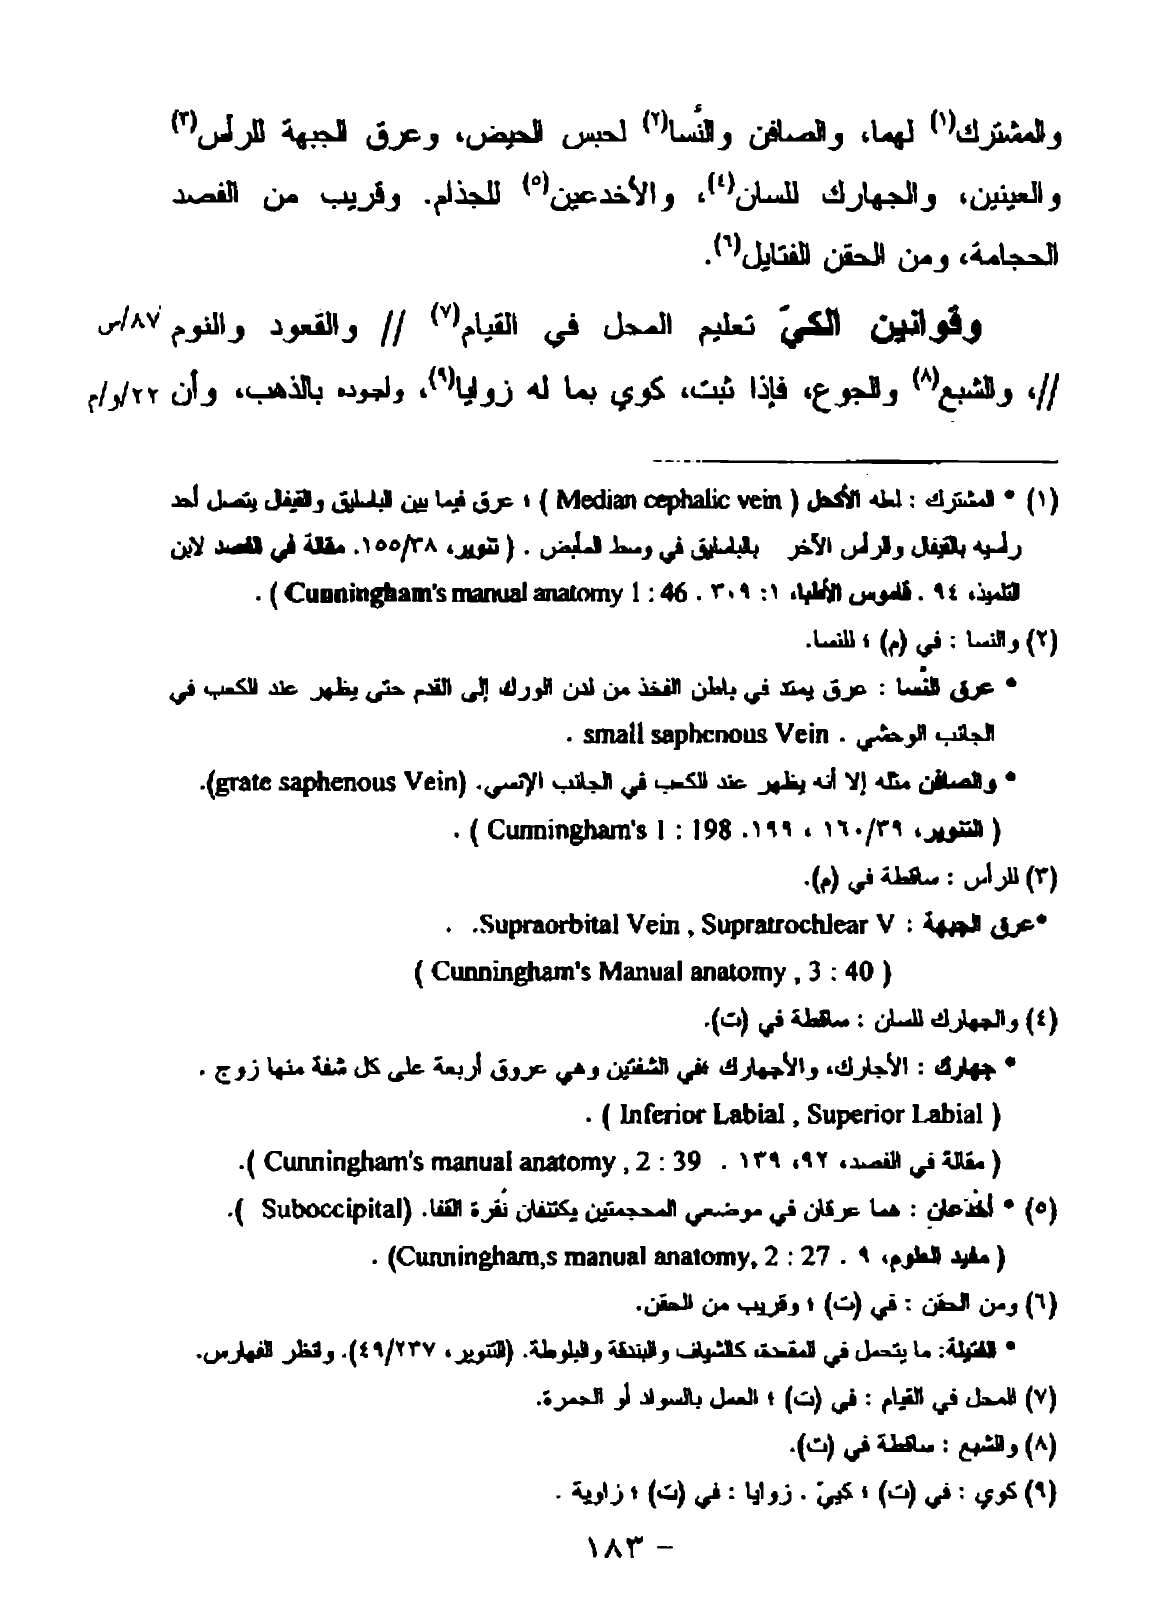 والمشترك(١) لهما، والصافن والنُسا(٢) لحبس الحيض، وعرق الجبهة للرأس(٣)
والعينين، والجهارك للسان(٤)، والأخدعين(٥) للجذام. وقريب من الفصد
الحجامة، ومن الحقن الفتايل(٦).
وقوانين الكيّ تعليم المحل في القيام(٧) // والقعود والنوم ٨٧/س
//، والشبع(٨) والجوع، فإذا ثبت، كوي بما له زوايا(٩)، واجوده بالذهب، وأن ٢٢/و/م
(١) * المشترك : لعله الأكحل ( Median cephalic vein ) ؛ عرق فيما بين الباسليق والقيفال يتصل أحد
رأسيه بالقيفال والرأس الآخر بالباسليق في وسط المأبض . ( تنوير، ١٥٥/٣٨. مقالة في الفصد لابن
التلميذ، ٩٤ . قاموس الأطباء، ١: ٣٠٩ . Cunningham's manual anatomy 1 : 46 ) .
(٢) والنسا : في (م) ؛ للنسا.
* عرق النْسا : عرق يمتد في باطن الفخذ من لدن الورك إلى القدم حتى يظهر عند الكعب في
الجانب الوحشي . small saphenous Vein .
* والصافن مثله إلا أنه يظهر عند الكعب في الجانب الإنسي. (grate saphenous Vein).
( التنوير، ١٦٠/٣٩ ، ١٩٩. Cunningham's 1 : 198 ) .
(٣) للرأس : ساقطة في (م).
*عرق الجبهة : Supraorbital Vein , Supratrochlear V. .
( Cunningham's Manual anatomy , 3 : 40 )
(٤) والجهارك للسان : ساقطة في (ت).
* جهارك : الأجارك، والأجهارك ؛في الشفتين وهي عروق أربعة على كل شفة منها زوج .
( Inferior Labial , Superior Labial ) .
( مقالة في الفصد، ٩٢، ١٣٩ . Cunningham's manual anatomy , 2 : 39 ).
(٥) * أخْدَعان : هما عرقان في موضعي المحجمتين يكتنفان نُقرة القفا. (Suboccipital ).
( مفيد العلوم، ٩ . Cunningham,s manual anatomy, 2 : 27) .
(٦) ومن الحقن : في (ت) ؛ وقريب من الحقن.
* الفتيلة: ما يتحمل في المقعدة، كالشياف والبندقة والبلوطة. (التنوير، ٤٩/٢٣٧). وانظر الفهارس.
(٧) المحل في القيام : في (ت) ؛ العمل بالسواد أو الحمرة.
(٨) والشبع : ساقطة في (ت).
(٩) كوي : في (ت) ؛ كييّ . زوايا : في (ت) ؛ زاوية .
– ١٨٣